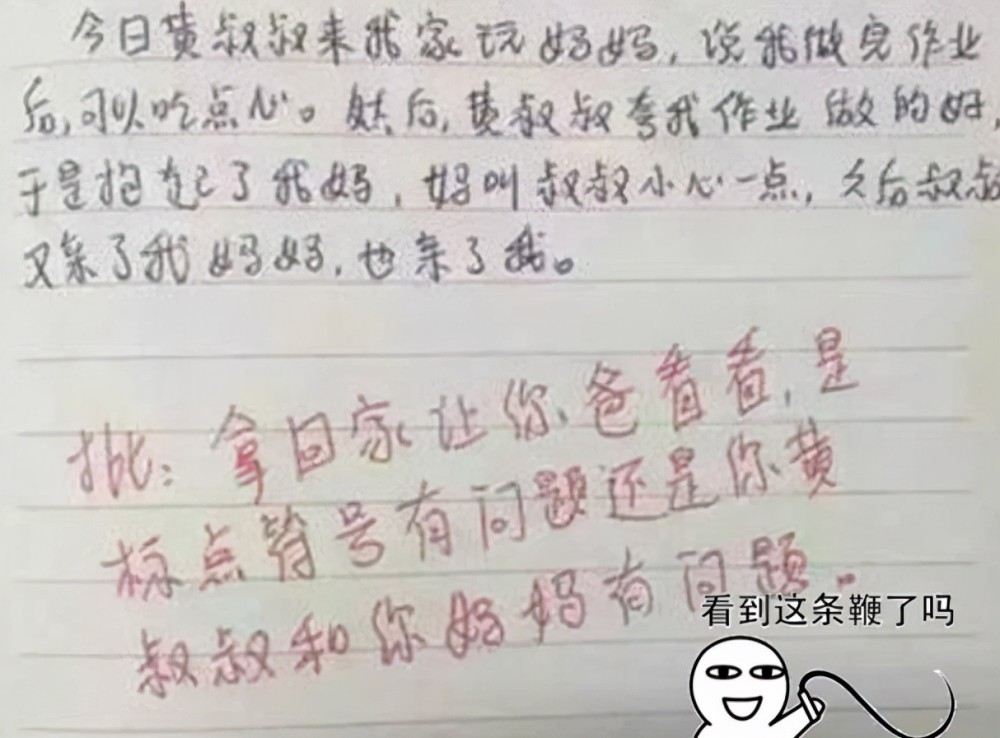 今日黄叔叔来我家玩妈妈，说我做完作业
后，可以吃点心。然后，黄叔叔夸我作业做的好，
于是抱起了我妈，妈叫叔叔小心一点，久后叔叔
又亲了我妈妈，也亲了我。
批：拿回家让你爸看看，是
标点符号有问题还是你黄
叔叔和你妈妈有问题．
看到这条鞭了吗